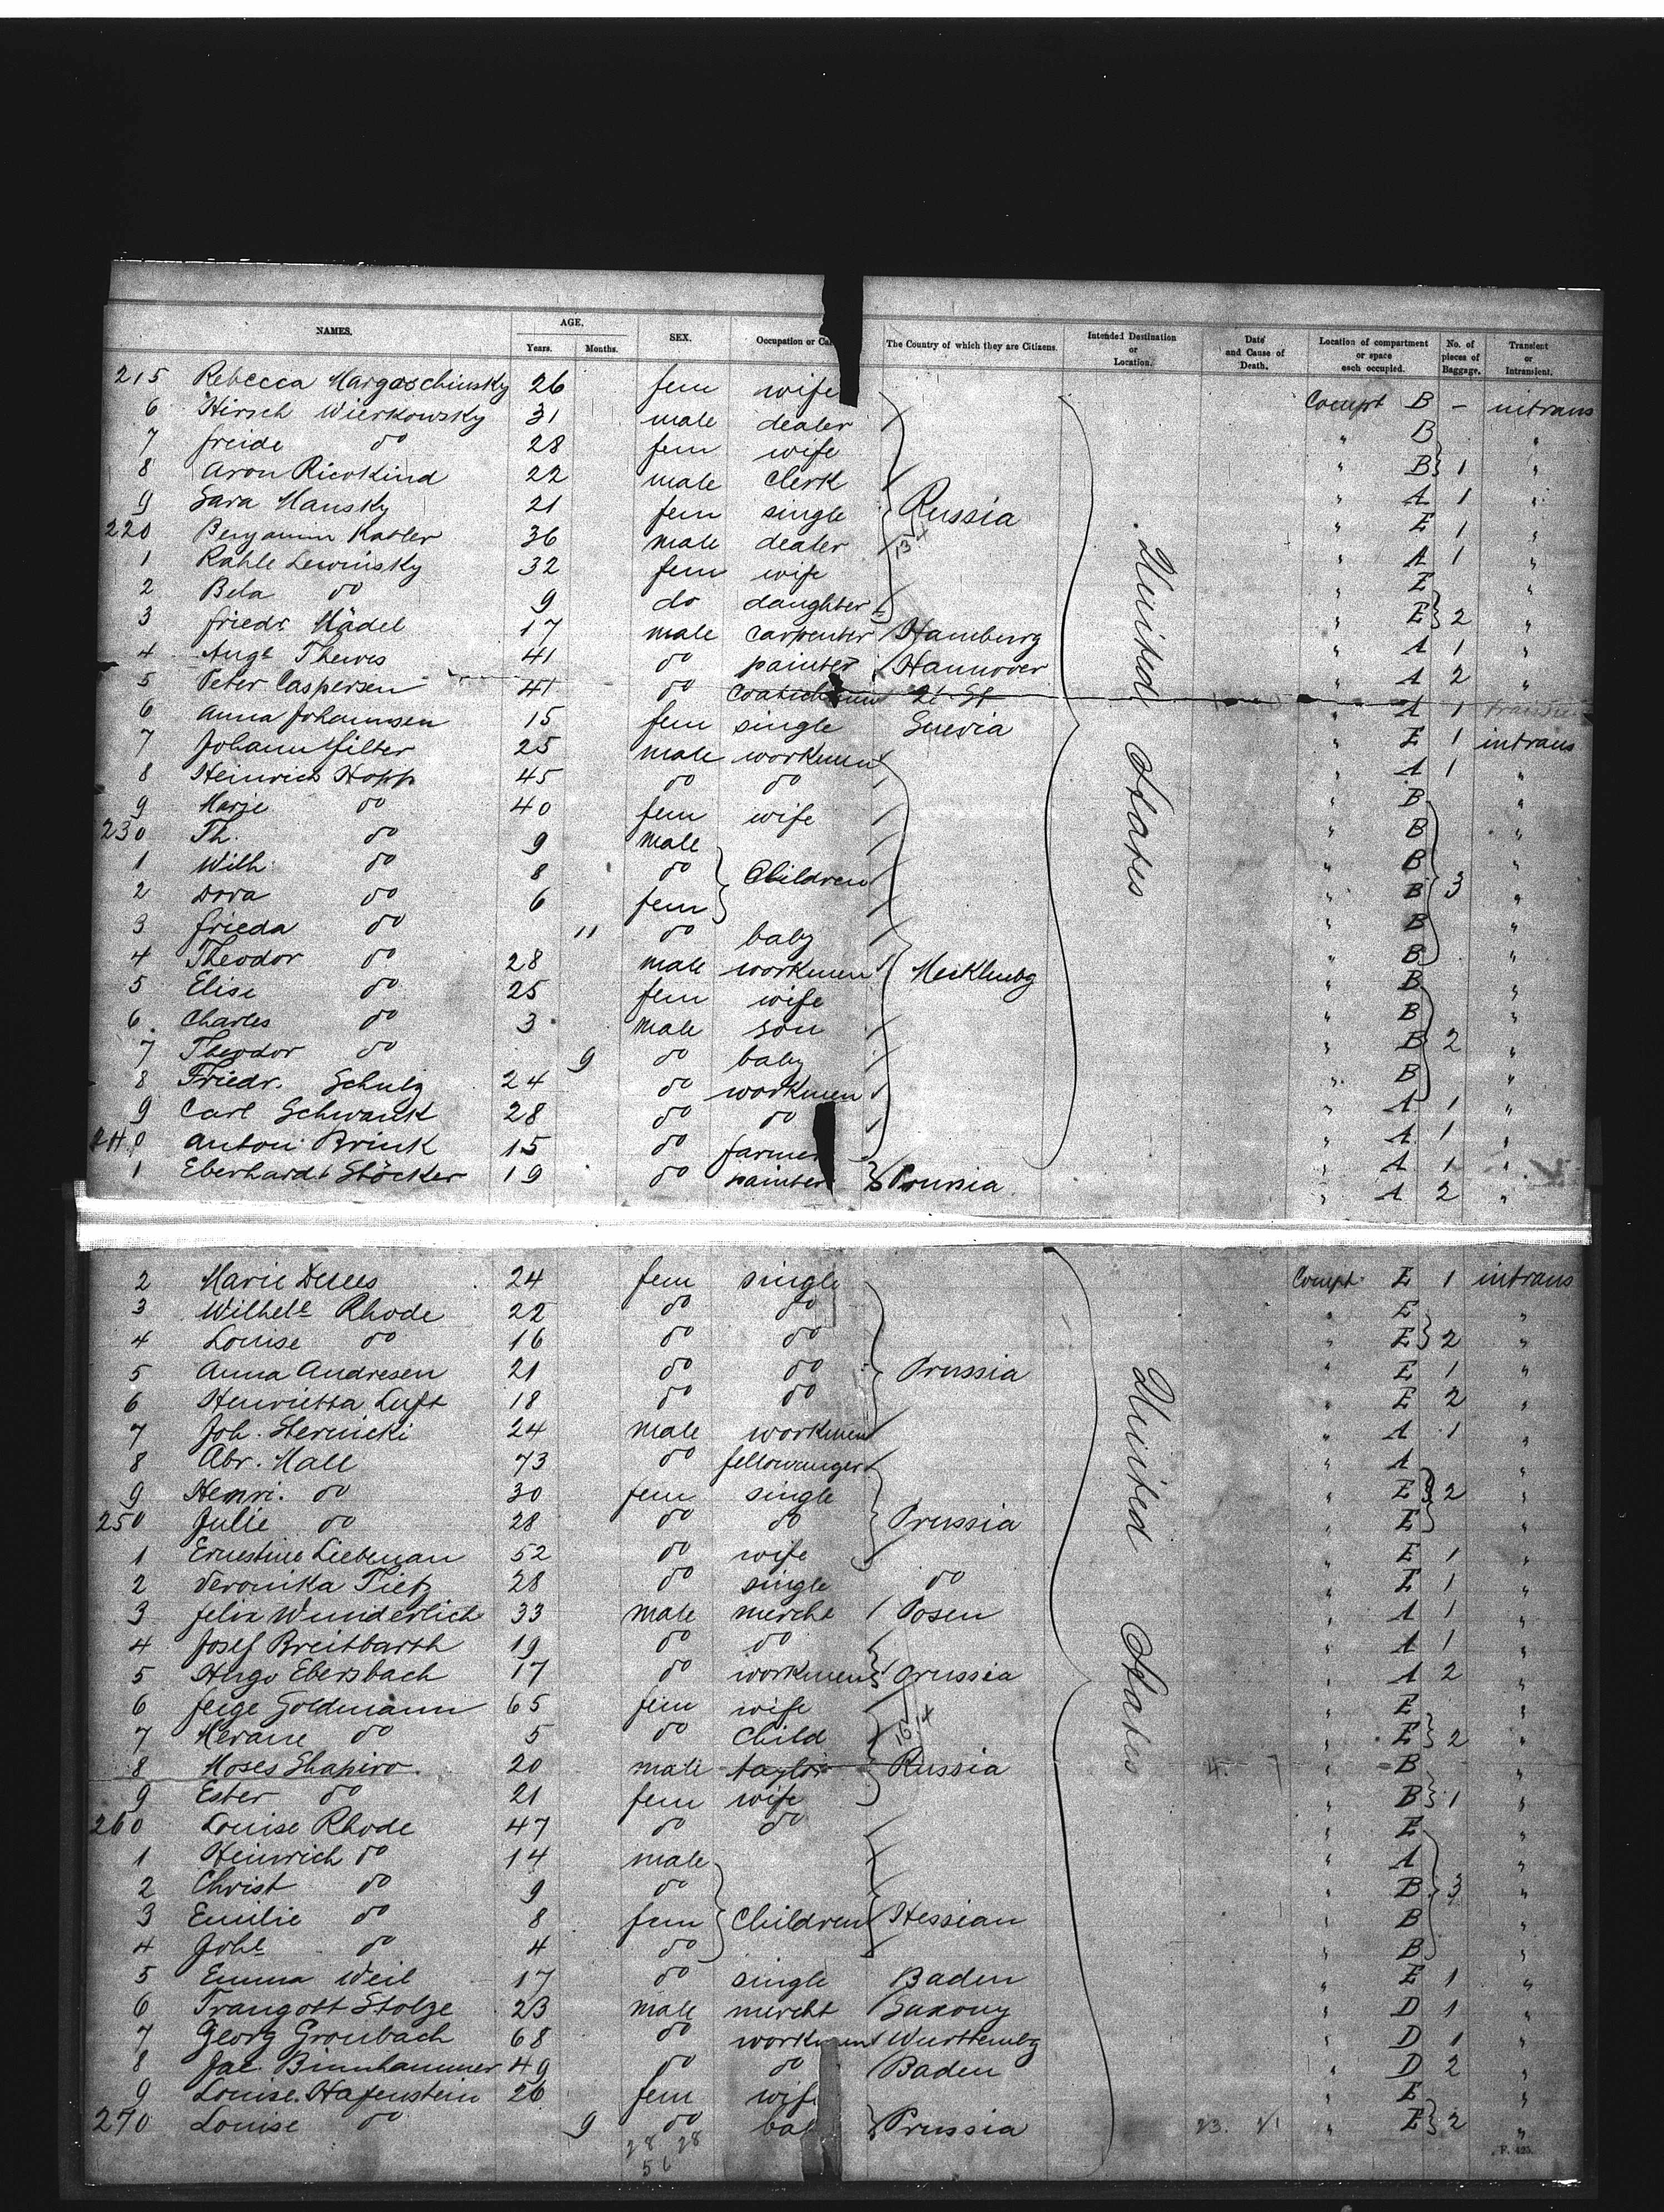 NAMES. AGE. Years. Months. SEX. Occupation or Cal The Country of which they are Citizens. Intended Destination or Location. Date and Cause of Death. Location of compartment or space each occupied. No. of pieces of Baggage. Transient or Intransient.
215 Rebecca Margaschinsky 26 fem wife Compt B – intrans
6 Hirsch Wierkowsky 31 male dealer " B "
7 Freide do 28 fem wife " B 1 "
8 Aron 22 male clerk " A 1 "
9 Sara Mansky 21 fem single Russia " E 1 "
220 Benjamin Kasler 36 male dealer " A 1 "
1 Rahle Lewinsky 32 fem wife " E "
2 Bela do 9 do daughter " E 2 "
3 Friedr Mädel 17 male carpenter Hamburg " A 1 "
4 Augt Thewes 41 do painter Hannover " A 2 "
5 Peter Caspersen 41 do U St " A 1
6 Anna Johannsen 15 fem single Suevia " E 1 intrans
7 Johann Hilter 25 male workmen " A 1 "
8 Heinrich Hopp 45 do do " B "
9 Marje do 40 fem wife " B "
230 Th. do 9 male " B "
1 Wilh do 8 do Children " B 3 "
2 Dora do 6 fem " B "
3 Frieda do 11 do baby " B "
4 Theodor do 28 male workmen Mecklenbg " B "
5 Elise do 25 fem wife " B "
6 Charles do 3 male son " B 2 "
7 Theodor do 9 do baby " B "
8 Friedr. Schulz 24 do workmen " A 1 "
9 Carl Schwank 28 do do " A 1 "
240 Anton Brink 15 do farmer " A 1 "
1 Eberhardt Stöcker 19 do painter Prussia " A 2 "
United States
2 Marie 24 fem single Compt E 1 intrans
3 Wilhe Rhode 22 do do " E "
4 Louise do 16 do do " E 2 "
5 Anna Andresen 21 do do Prussia " E 1 "
6 Henrietta Luft 18 do do " E 2 "
7 Joh. Sternicki 24 male workmen " A 1 "
8 Abr. Mall 73 do " A "
9 Henri. do 30 fem single " E 2 "
250 Julie do 28 do do Prussia " E "
1 Ernestine Liebenau 52 do wife " E 1 "
2 Veronika Tietz 28 do single do " E 1 "
3 Felix Wunderlich 33 male mercht Posen " A 1 "
4 Josef Breitbarth 19 do do " A 1 "
5 Hugo Ebersbach 17 do workmen Prussia " A 2 "
6 Feige Goldmann 65 fem wife " E "
7 Merane do 5 do child " E 2 "
8 Moses Shapiro 20 male taylor Russia " B "
9 Ester do 21 fem wife " B 1 "
260 Louise Rhode 47 do do " E "
1 Heinrich do 14 male " A "
2 Christ do 9 do " B 3 "
3 Emilie do 8 fem Children Hessian " B "
4 Johe do 4 do " B "
5 Emma Weil 17 do single Baden " E 1 "
6 Traugott Stolze 23 male mercht Saxony " D 1 "
7 Georg Gronbach 68 do workmen Wurttembg " D 1 "
8 Jac Binnhammer 49 do do Baden " D 2 "
9 Louise Hafenstein 26 fem wife " E "
270 Louise do 9 do bab Prussia " E 2 "
United States
28 28
56
F. 425.